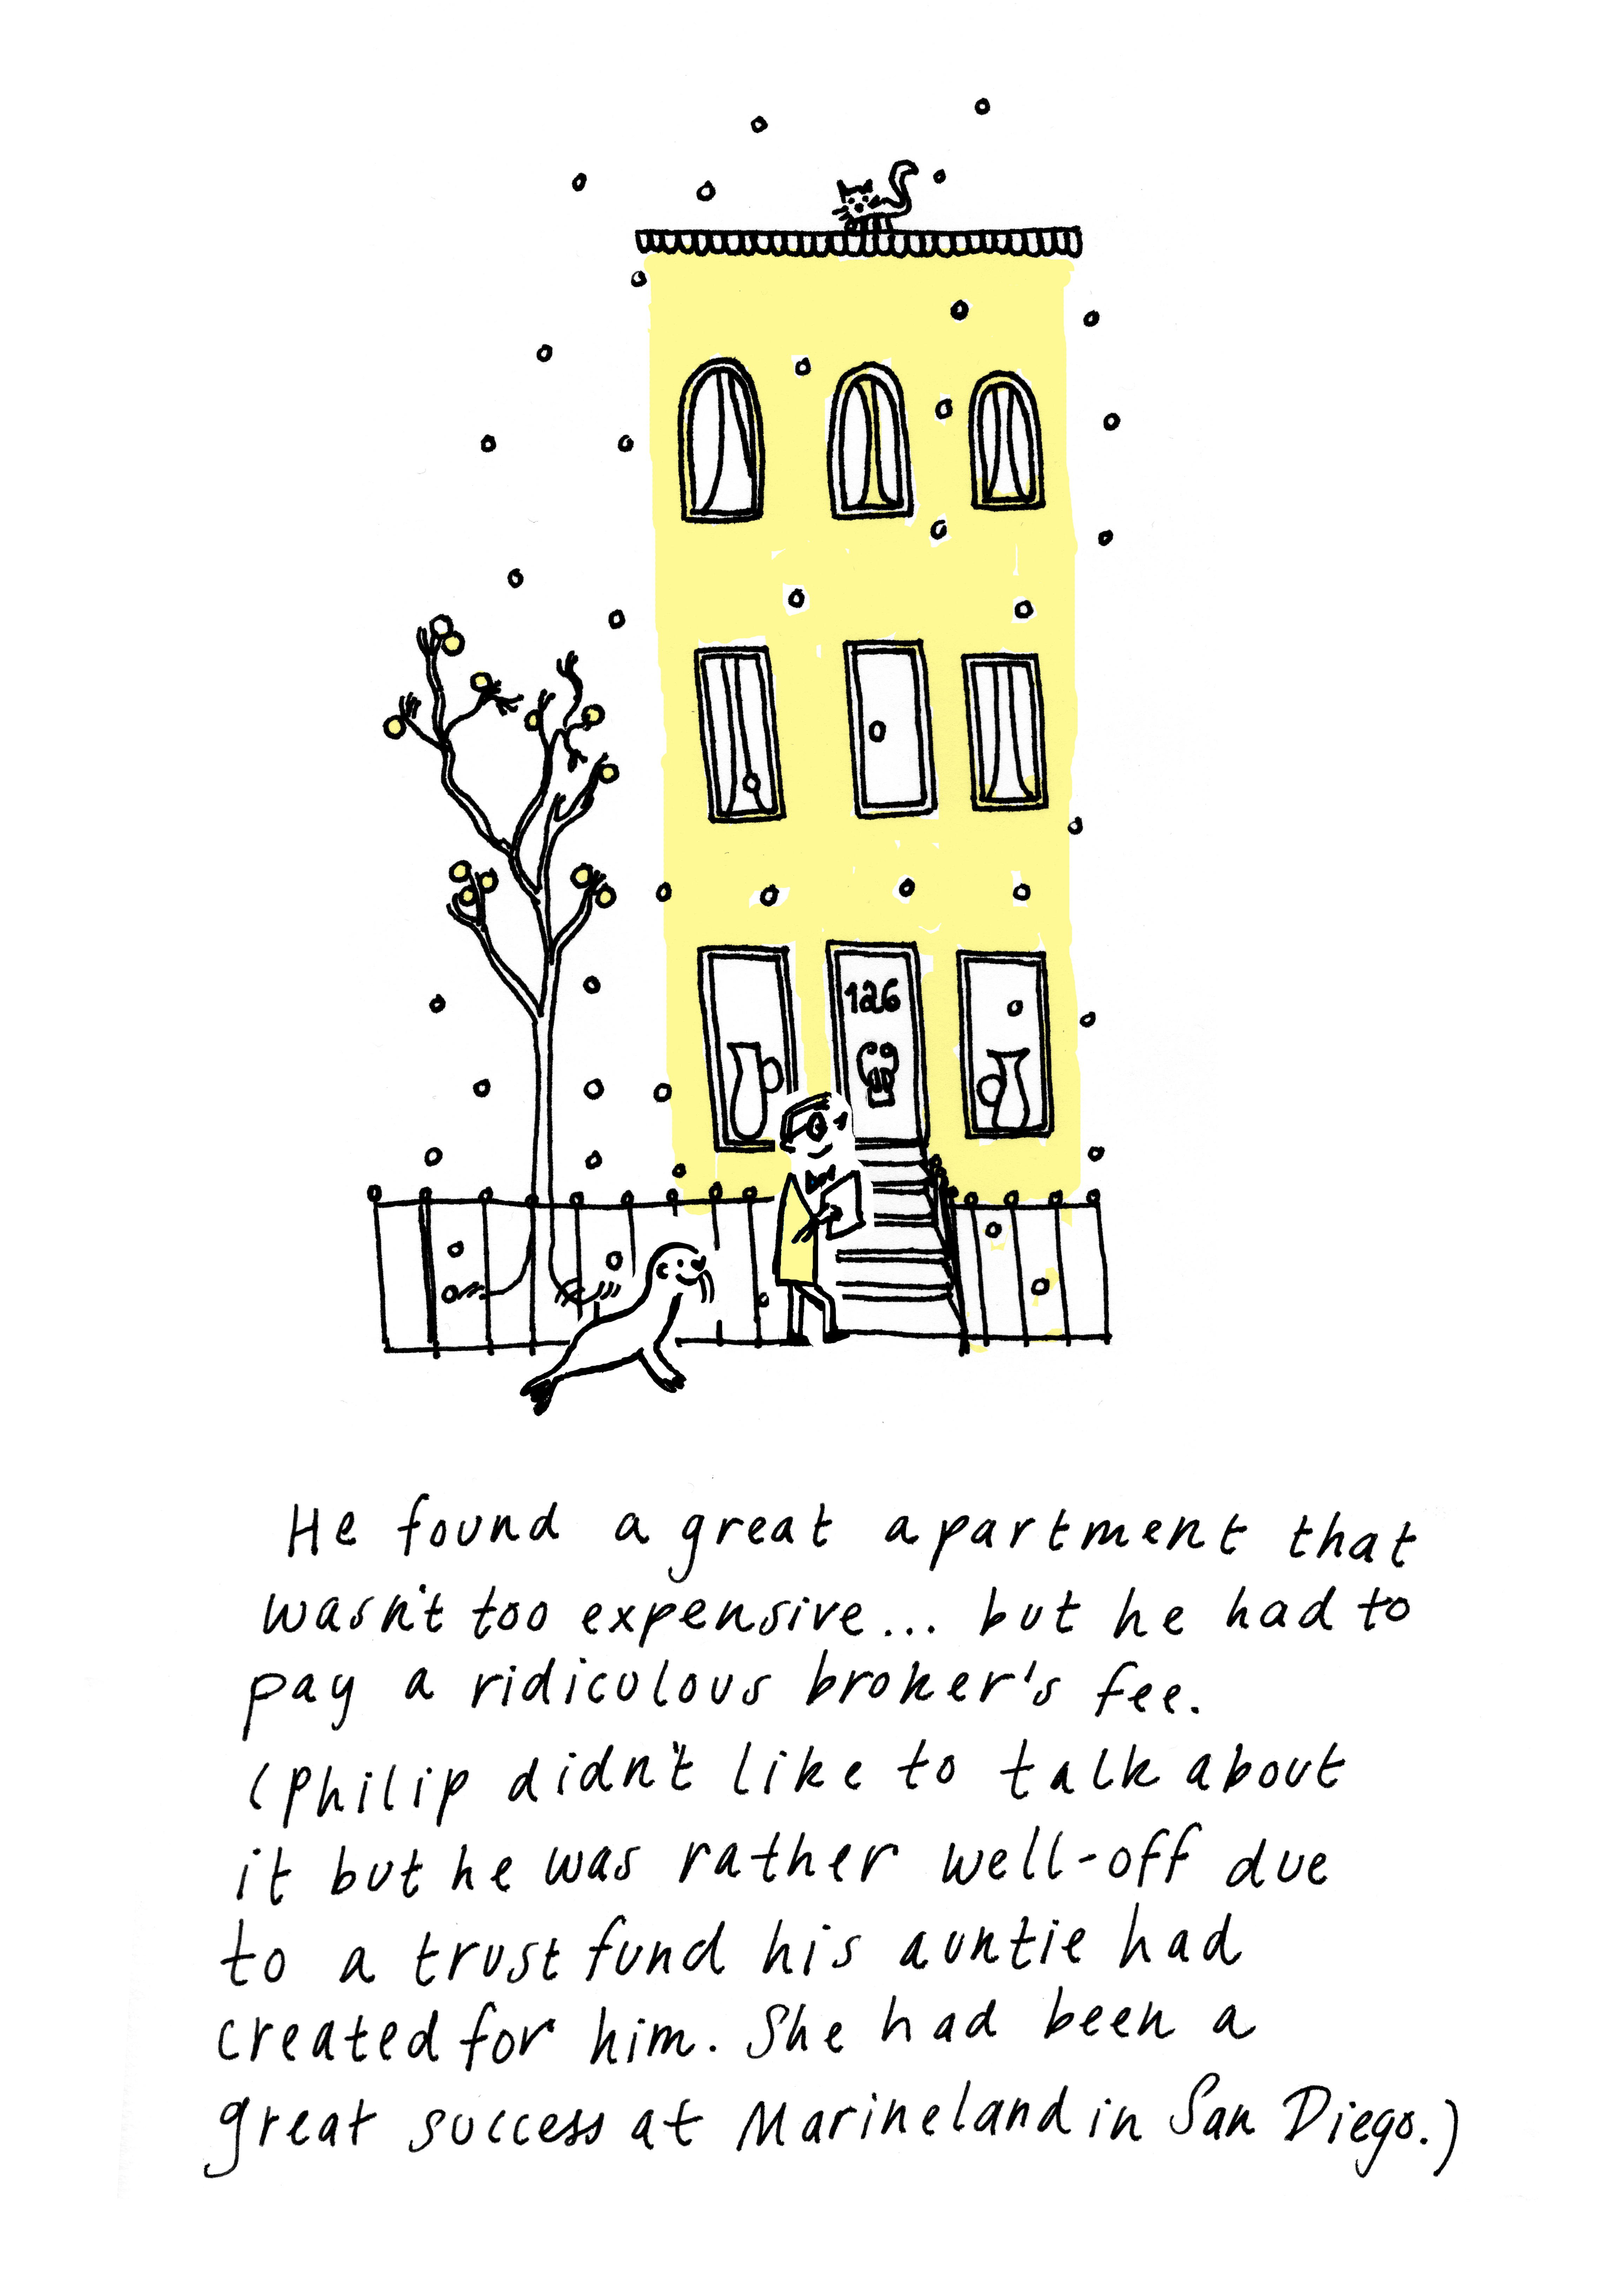 126
He found a great apartment that
wasn't too expensive... but he had to
pay a ridiculous broker's fee.
(Philip didn't like to talk about
it but he was rather well-off due
to a trust fund his auntie had
created for him. She had been a
great success at Marineland in San Diego.)